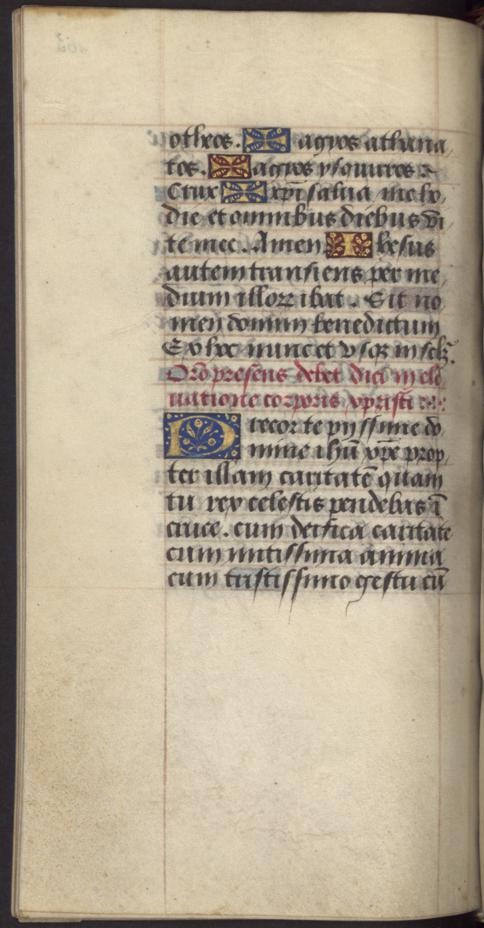 otheos. ✠ agyos athana
tos. ✠ agyos ysquiros
Crux ✠ xpi salua me ho
die et omnibus diebus vi
te mee. Amen ✠ Ihesus
autem transiens per me
dium illorz ibat. Sit no
men domini benedictum
Ex hoc nunc et vsqz in sclz.
Oro presens debet dici in ele
uatione corporis xpristi
Precor te pyssime do
mine ihu xpe prop
ter illam caritatē quam
tu rex celestis pendebas ī
cruce. cum deifica caritate
cum mitissima anima
cum tristissimo gestu cū